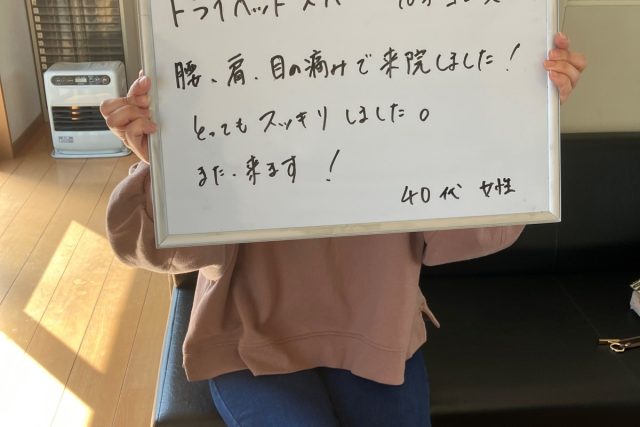 ドライヘッドスパ 70分コース
腰、肩、目の痛みで来院しました！
とってもスッキリしました。
また、来ます！
40代 女性